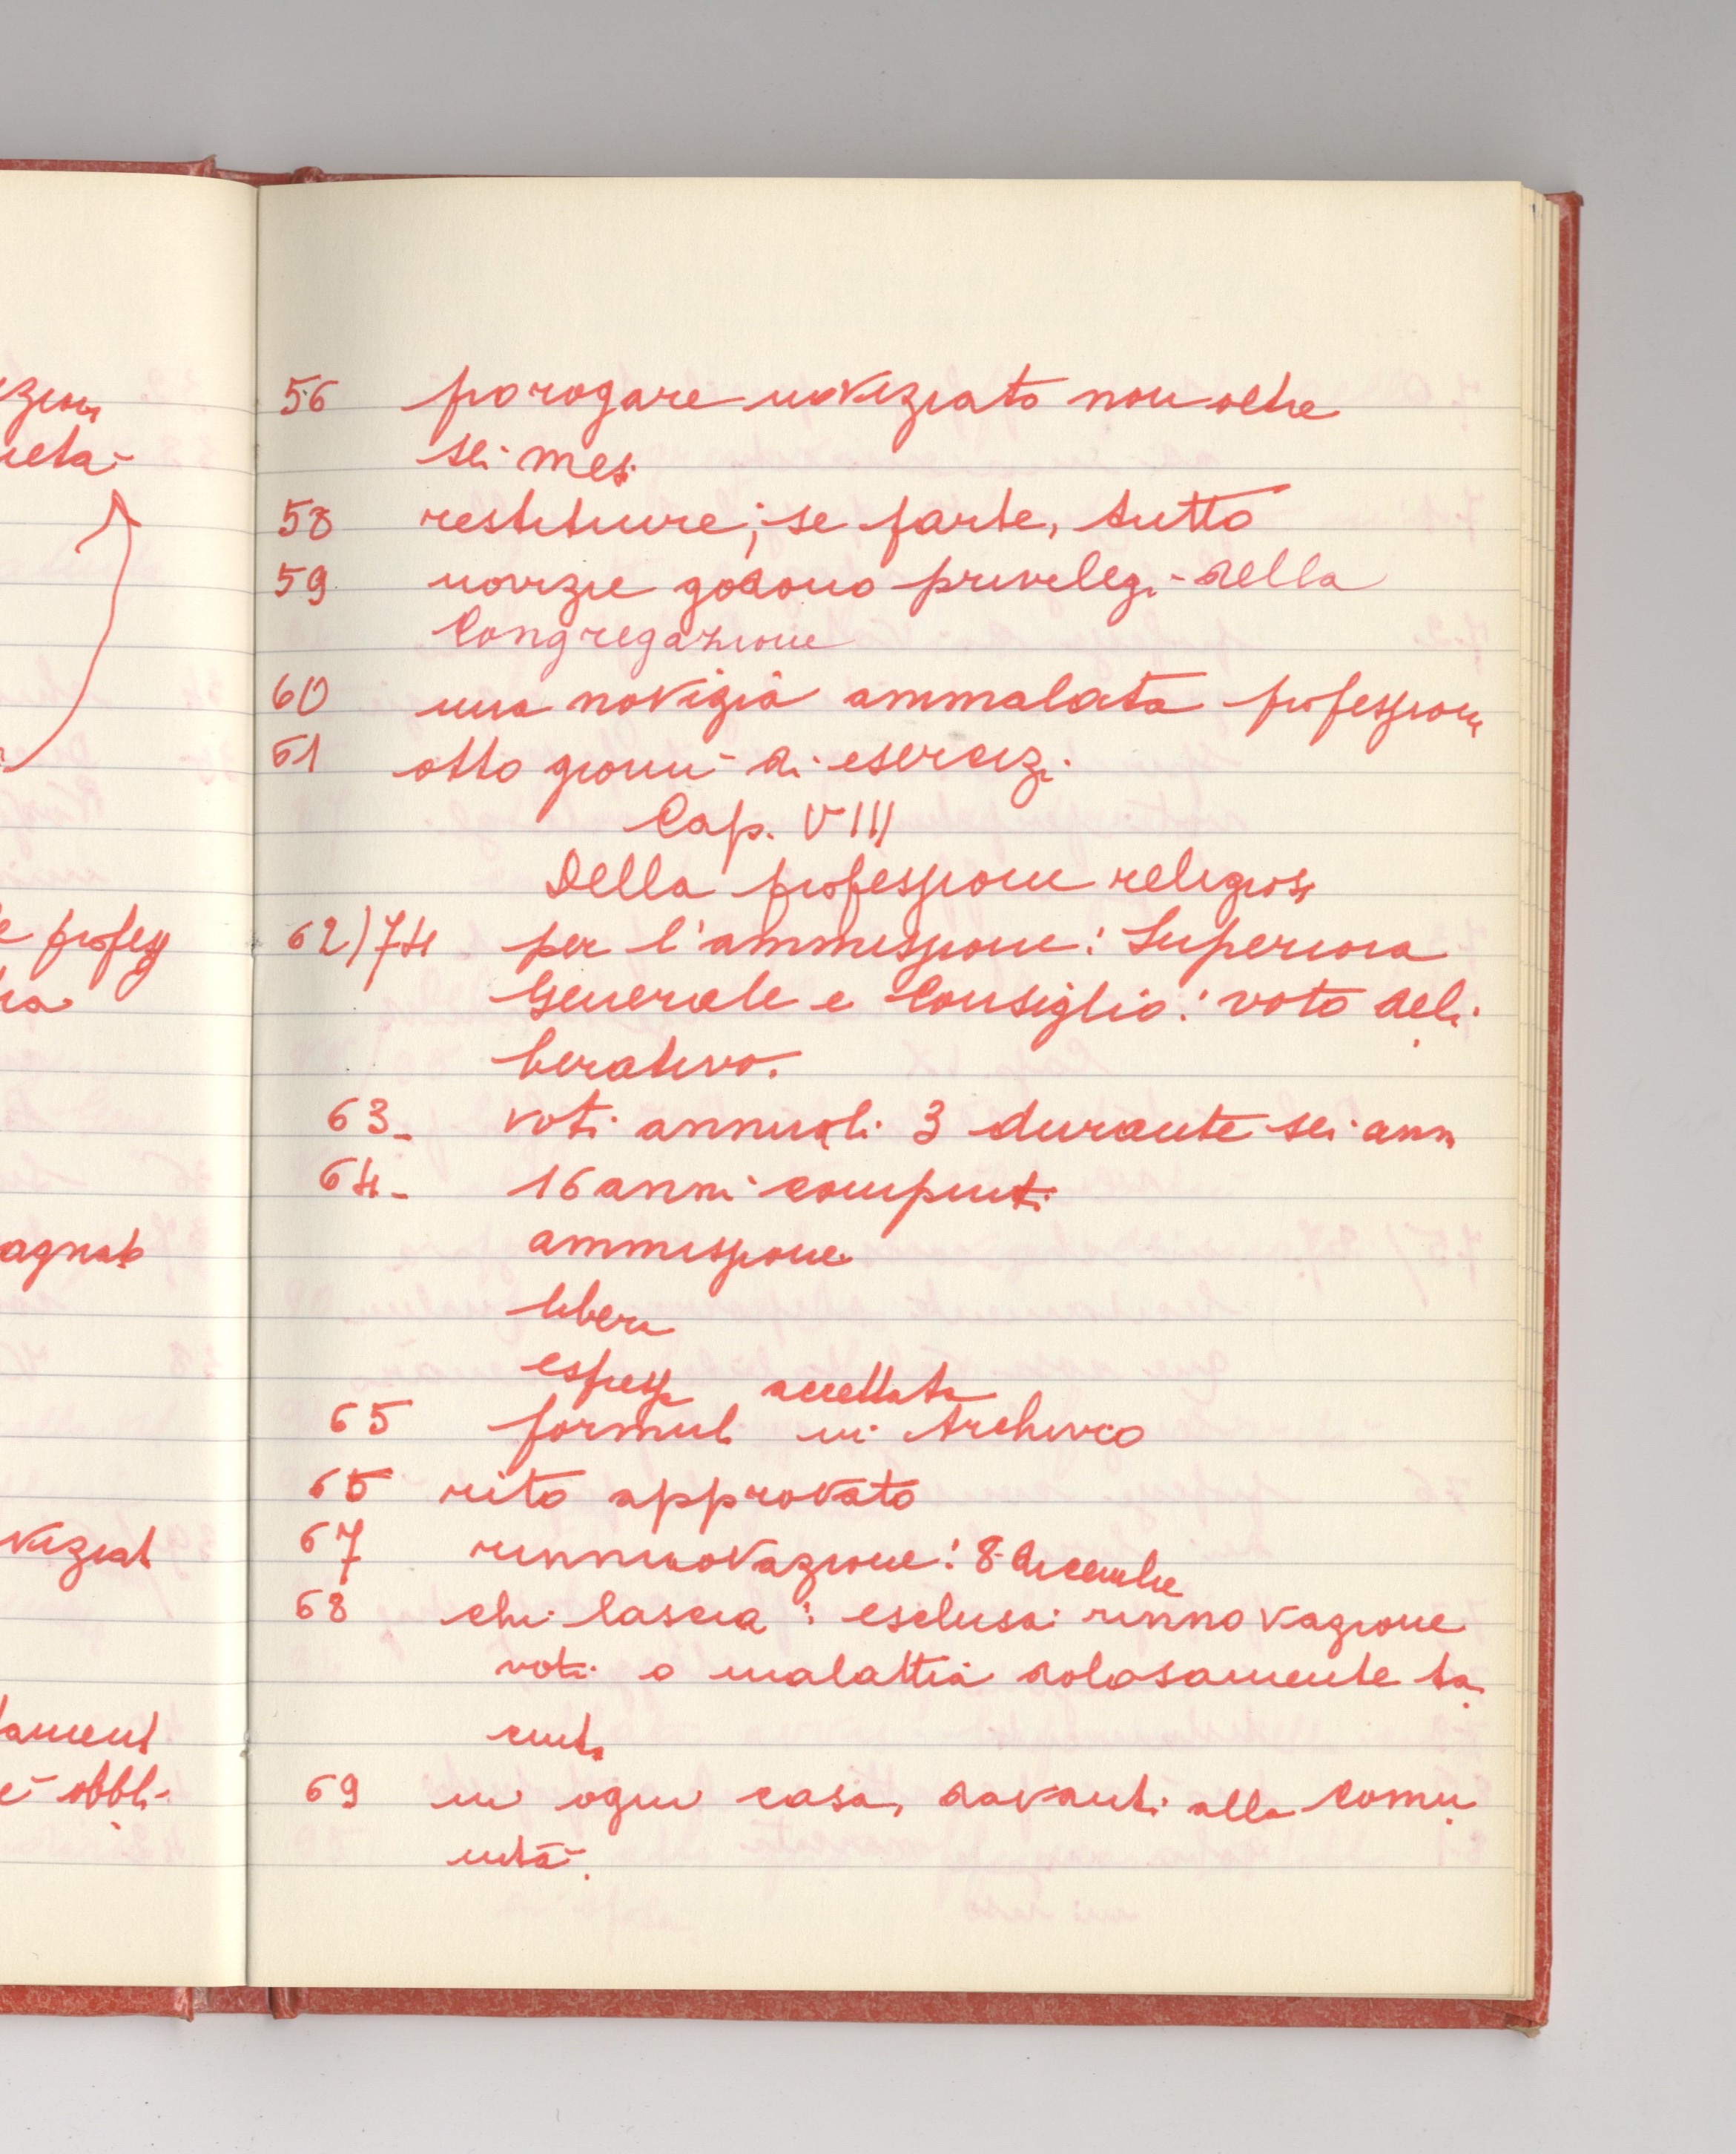 56 porogare noviziato non oltre
sei mesi
58 restituire; se parte, tutto
59 novizie godono privilegi della
Congregazione
60 una novizia ammalata professione
61 otto giorni di esercizi
Cap. VIII
Della professione religiosa
62)74 per l'ammissione: Superiora
Generale e Consiglio: voto deli
berativo.
63- voti annuali 3 durante sei anni
64- 16 anni compiuti
ammissione
libera
espressa accettata
65 formula in Archivio
65 rito approvato
67 rinnuovazione: 8 dicembre
68 chi lascia: esclusa: rinnovazione
voti o malattia dolosamente ta
ciuta
69 in ogni casa, davanti alla comu
nità.